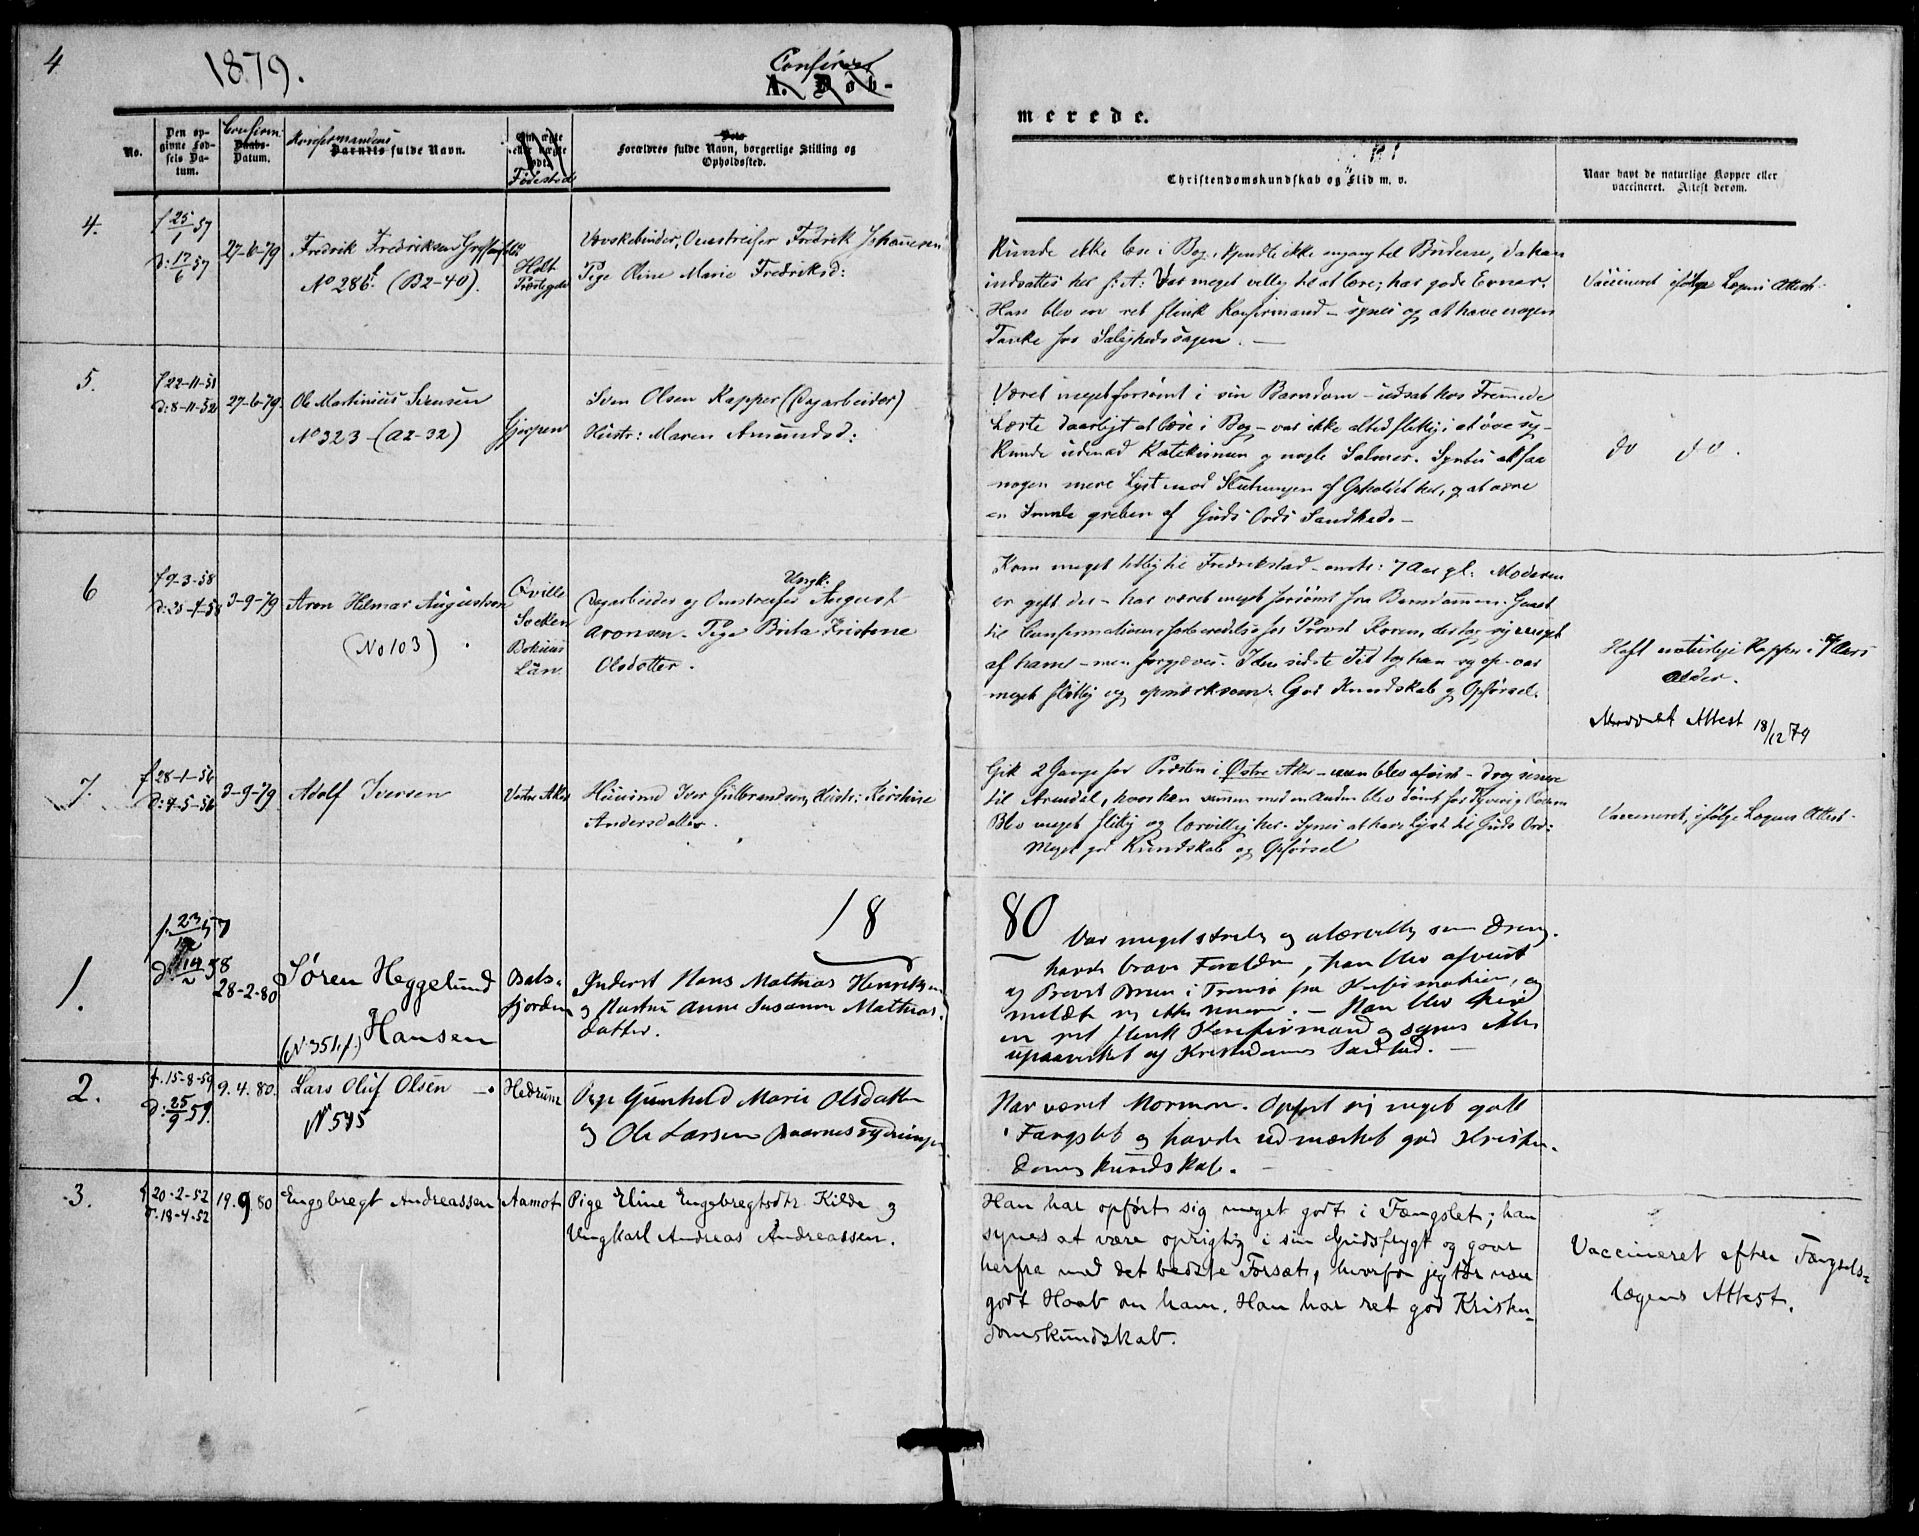 4
1879.
Confir
A. Døb-
merede.
No.
Den op-
givne Fød-
sels Da-
tum.
Confirm.
Daabs-
Datum.
Konfirmandens
Barnets fulde Navn.
Fødested
Forældres fulde Navn, borgerlige Stilling og
Opholdssted.
Christendomskundskab og Flid m. v.
Naar havt de naturlige Kopper eller
vaccineret. Attest derom.
4.
f 25/1 57
d: 17/6 57
27-6-79
Fredrik Fredriksen
No 286. (B2-40).
Holt
Præstegjeld
Omstreifer Fredrik Johannesen
Pige Oline Marie Fredriksd:
Kunde ikke læse i Bog, kjendte ikke engang til Buderne, da han
indsattes her f: A: Var meget villig til at lære; har gode Evner.
Han blev en ret flink Konfirmand – synes og at have nogen
Tanke for Salighedssagen. —
Vaccineret ifølge Lægens Attest
5.
f 22-11-51
d: 8-11-52
27-6-79
Ole Martinius Svensen
No 323 - (A2-32)
Gjerpen
Sven Olsen Kapper (Dagarbeider)
Hustr: Maren Amundsd:
Været meget forsømt i sin Barndom – udsat hos Fremmede
Lærte daarligt at læse i Bog – var ikke altid flittig i at øve sig –
Kunde udenad Katekismen og nogle Salmer. Syntes at faa
nogen mere Lyst mod Slutningen af Opholdet her, og at være
greben af Guds Ords Sandhed. –
do do.
6
f 9-3-58
d: 25-4-58
3-9-79
Aron Helmar Augustson
(No 103)
Qville
Socken
Bohuus
Län
Ungk.
Dagarbeider og Omstreifer August
Aronsen - Pige Brita Kristene
Olsdotter.
Kom meget tidlig til Fredrikstad – omtr: 7 Aar gl: Moderen
er gift der – har været meget forsømt fra Barndommen. Gaaet
til Confirmationsforberedelse hos Provst Koren, der tog sig meget
af ham – men forgjæves. I den sidste Tid tog han sig op – var
meget flittig og opmærksom. God Kundskab og Opførsel.
Haft naturlige Kopper i 7 Aars
Alder.
Attest 18/12 79
7.
f 28-1-56
d: 4-5-56
3-9-79
Adolf Iversen
Vestre Aker
Huusmd Iver Gulbrandsen, Hustr: Kirstine
Andersdatter.
Gik 2 Gange for Præsten i Østre Aker – men blev afvist – drog senere
til Arendal, hvor han sammen med en Anden blev dømt for Tyveri
Blev meget flittig og lærvillig her. Synes at have Lyst til Guds Ord:
Meget god Kundskab og Opførsel
Vaccineret, ifølge Lægens Attest.
18
80
1.
f. 23/12 57
d: 14/2 58
28-2-80
Søren Heggelund
Hansen
(N 351.f.)
Bals-
fjorden
Inderst Hans Mathias Henriksen
og Hustru Anne Susanna Mathias-
datter.
Var meget og ulærvillig som Dreng.
havde brave Forældre, han blev afvist
af Provst Bruun i Tromsø fra Konfirmation, og
meldte sig ikke mere. – Han blev her
en ret flink Konfirmand og synes
upaavirket af Kristendommens Sandhed. —
2.
f. 15-8-59
d: 25/9 59.
9.4.80.
Lars Oluf Olsen
N 545
Hedrum
Pige Gunhild Marie Olsdatter
og Ole Larsen
Har været Mormon. Opført sig meget godt
i Fængslet og havde udmærket god Kristen-
domskundskab. —
3.
f. 20-2-52
d. 18-4-52
19.9.80
Engebregt Andreassen
Aamot
Pige Eline Engebregtsdtr. Kilde og
Ungkarl Andreas Andreassen.
Han har opført sig meget godt i Fængslet; han
synes at være oprigtig i sin Gudsfrygt og gaar
herfra med det bedste Forsæt, hvorfor jeg tør nære
godt Haab om ham. Han har ret god Kristen-
domskundskab.
Vaccineret efter Fængsels-
lægens Attest.